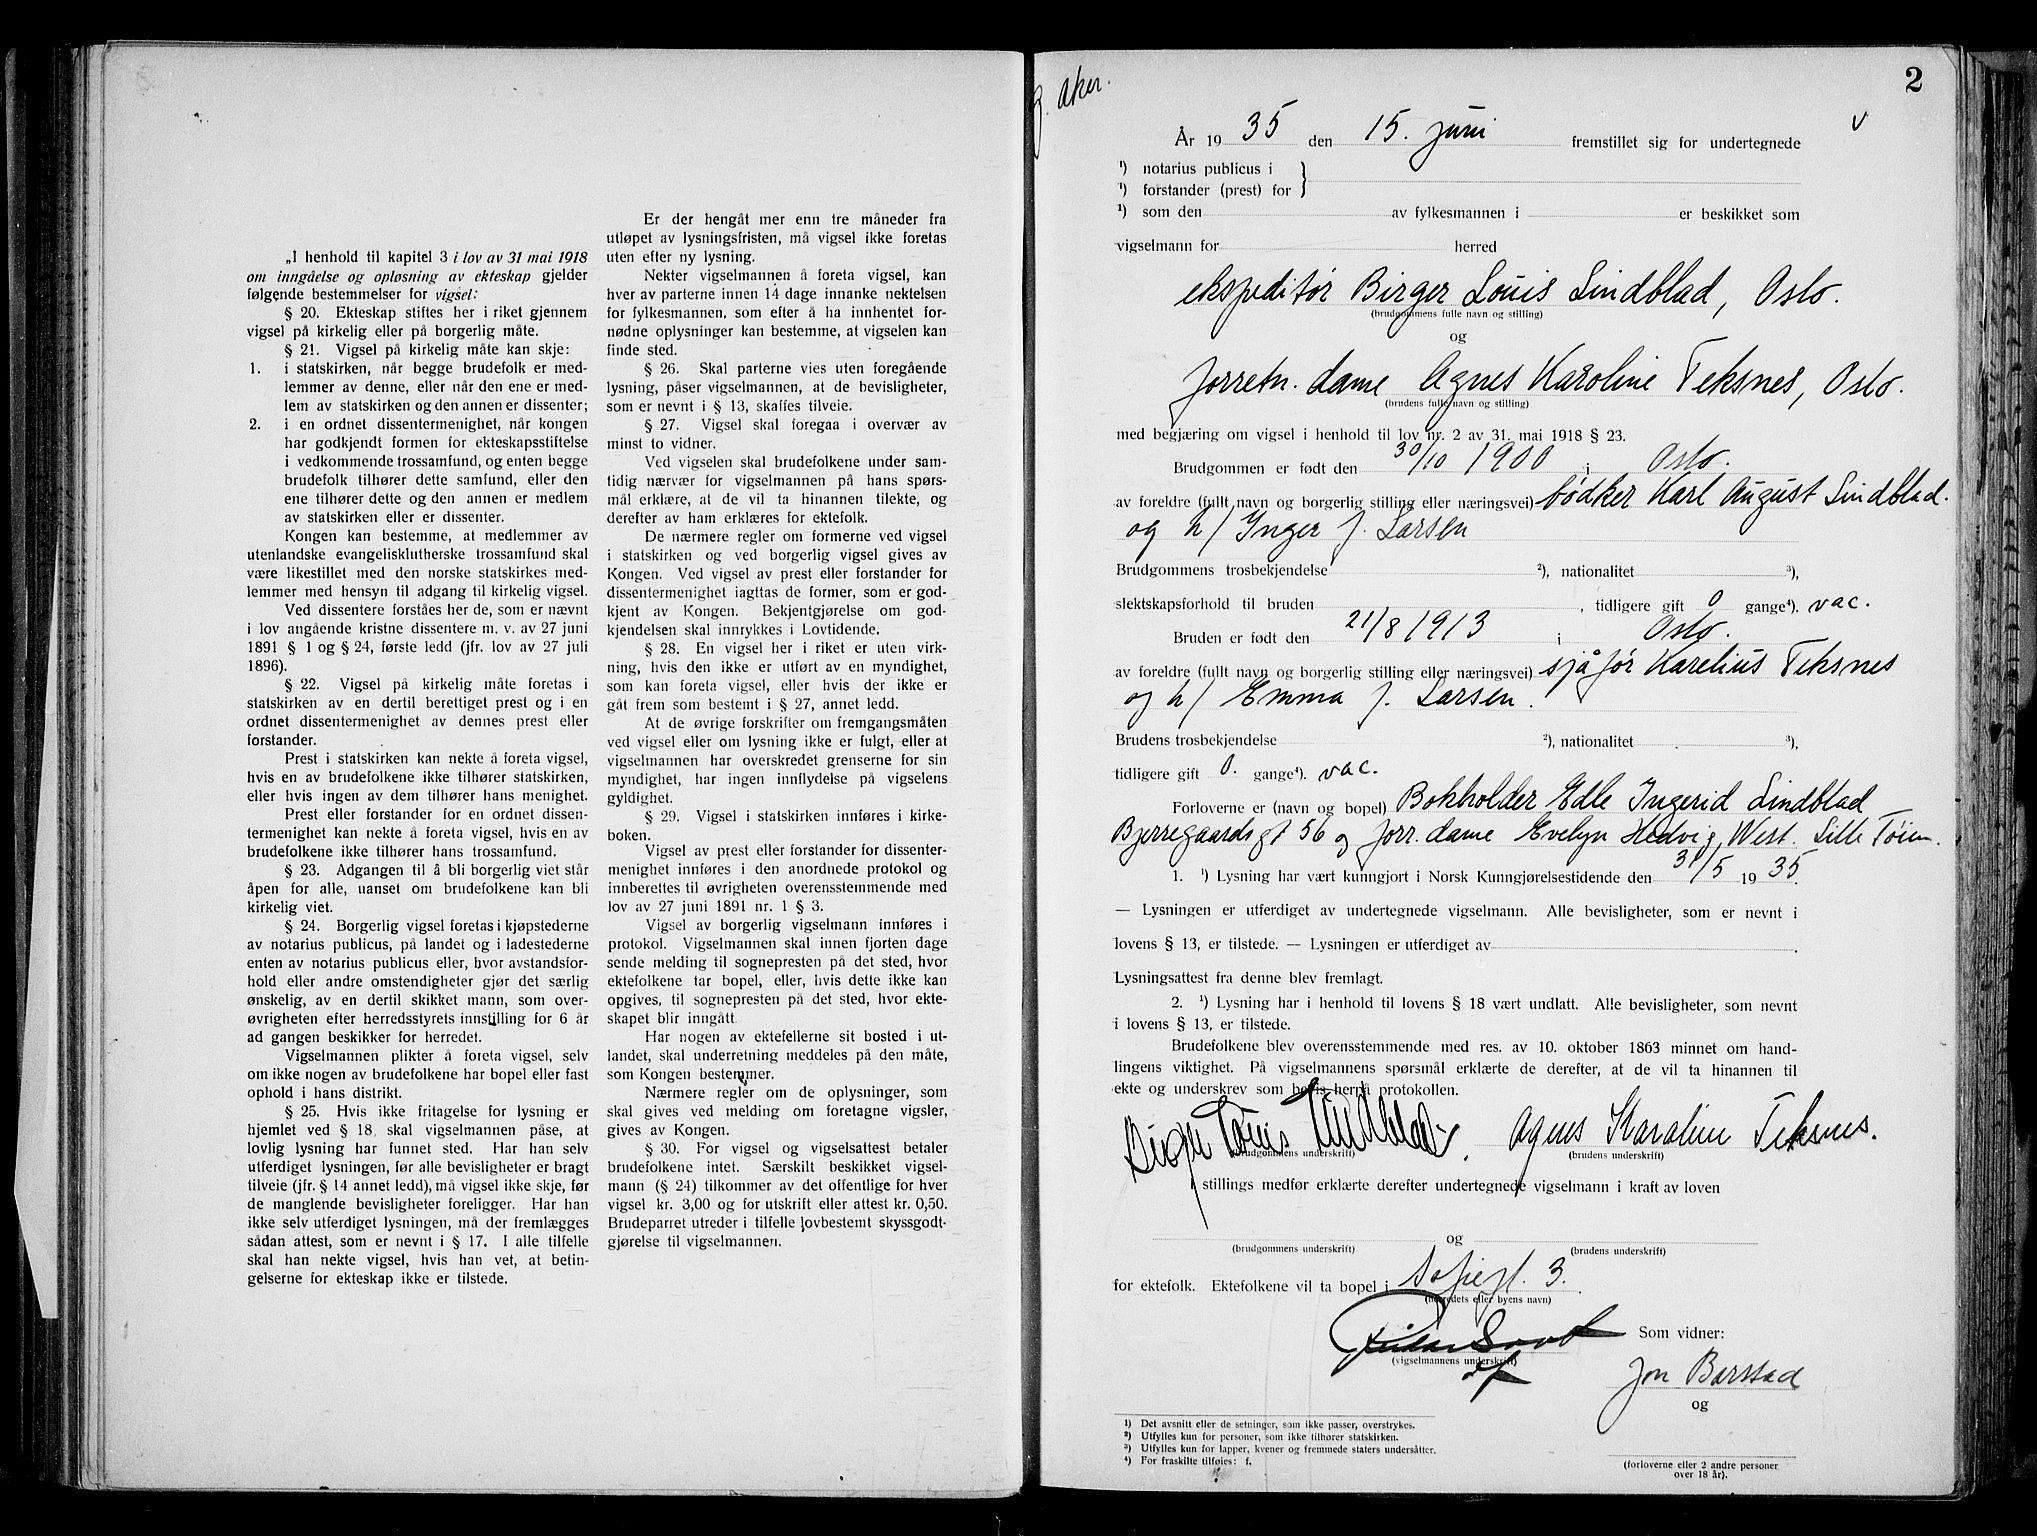 „I henhold til kapitel 3 i lov av 31 mai 1918
om inngåelse og opløsning av ekteskap gjelder
følgende bestemmelser for vigsel:
§ 20. Ekteskap stiftes her i riket gjennem
vigsel på kirkelig eller på borgerlig måte.
§ 21. Vigsel på kirkelig måte kan skje:
1. i statskirken, når begge brudefolk er med-
lemmer av denne, eller når den ene er med-
lem av statskirken og den annen er dissenter;
2. i en ordnet dissentermenighet, når kongen
har godkjendt formen for ekteskapsstiftelse
i vedkommende trossamfund, og enten begge
brudefolk tilhører dette samfund, eller den
ene tilhører dette og den annen er medlem
av statskirken eller er dissenter.
Kongen kan bestemme, at medlemmer av
utenlandske evangelisklutherske trossamfund skal
være likestillet med den norske statskirkes med-
lemmer med hensyn til adgang til kirkelig vigsel.
Ved dissentere forståes her de, som er nævnt
i lov angående kristne dissentere m. v. av 27 juni
1891 § 1 og § 24, første ledd (jfr. lov av 27 juli
1896).
§ 22. Vigsel på kirkelig måte foretas i
statskirken av en dertil berettiget prest og i en
ordnet dissentermenighet av dennes prest eller
forstander.
Prest i statskirken kan nekte å foreta vigsel,
hvis en av brudefolkene ikke tilhører statskirken,
eller hvis ingen av dem tilhører hans menighet.
Prest eller forstander for en ordnet dissen-
termenighet kan nekte å foreta vigsel, hvis en av
brudefolkene ikke tilhører hans trossamfund.
§ 23. Adgangen til å bli borgerlig viet står
åpen for alle, uanset om brudefolkene kan bli
kirkelig viet.
§ 24. Borgerlig vigsel foretas i kjøpstederne
av notarius publicus, på landet og i ladestederne
enten av notarius publicus eller, hvor avstandsfor-
hold eller andre omstendigheter gjør det særlig
ønskelig, av en dertil skikket mann, som over-
øvrigheten efter herredsstyrets innstilling for 6 år
ad gangen beskikker for herredet.
Vigselmannen plikter å foreta vigsel, selv
om ikke nogen av brudefolkene har bopel eller fast
ophold i hans distrikt.
§ 25. Hvis ikke fritagelse for lysning er
hjemlet ved § 18, skal vigselmannen påse, at
lovlig lysning har funnet sted. Har han selv
utferdiget lysningen, før alle bevisligheter er bragt
tilveie (jfr. § 14 annet ledd), må vigsel ikke skje, før
de manglende bevisligheter foreligger. Har han
ikke selv utferdiget lysningen, må der fremlægges
sådan attest, som er nevnt i § 17. I alle tilfelle
skal han nekte vigsel, hvis han vet, at betin-
gelserne for ekteskap ikke er tilstede.
Er der hengåt mer enn tre måneder fra
utløpet av lysningsfristen, må vigsel ikke foretas
uten efter ny lysning.
Nekter vigselmannen å foreta vigsel, kan
hver av parterne innen 14 dage innanke nektelsen
for fylkesmannen, som efter å ha innhentet for-
nødne oplysninger kan bestemme, at vigselen kan
finde sted.
§ 26. Skal parterne vies uten foregående
lysning, påser vigselmannen, at de bevisligheter,
som er nevnt i § 13, skaffes tilveie.
§ 27. Vigsel skal foregaa i overvær av
minst to vidner.
Ved vigselen skal brudefolkene under sam-
tidig nærvær for vigselmannen på hans spørs-
mål erklære, at de vil ta hinannen tilekte, og
derefter av ham erklæres for ektefolk.
De nærmere regler om formerne ved vigsel
i statskirken og ved borgerlig vigsel gives av
Kongen. Ved vigsel av prest eller forstander for
dissentermenighet iagttas de former, som er god-
kjent av Kongen. Bekjentgjørelse om god-
kjendelsen skal innrykkes i Lovtidende.
§ 28. En vigsel her i riket er uten virk-
ning, hvis den ikke er utført av en myndighet,
som kan foreta vigsel, eller hvis der ikke er
gåt frem som bestemt i § 27, annet ledd.
At de øvrige forskrifter om fremgangsmåten
ved vigsel eller om lysning ikke er fulgt, eller at
vigselmannen har overskredet grenserne for sin
myndighet, har ingen innflydelse på vigselens
gyldighet.
§ 29. Vigsel i statskirken innføres i kirke-
boken.
Vigsel av prest eller forstander for dissenter-
menighet innføres i den anordnede protokol og
innberettes til øvrigheten overensstemmende med
lov av 27 juni 1891 nr. 1 § 3.
Vigsel av borgerlig vigselmann innføres i
protokol. Vigselmannen skal innen fjorten dage
sende melding til sognepresten på det sted, hvor
ektefolkene tar bopel, eller, hvis dette ikke kan
opgives, til sognepresten på det sted, hvor ekte-
skapet blir inngått.
Har nogen av ektefellerne sit bosted i ut-
landet, skal underretning meddeles på den måte,
som Kongen bestemmer.
Nærmere regler om de oplysninger, som
skal gives ved melding om foretagne vigsler,
gives av Kongen.
§ 30. For vigsel og vigselsattest betaler
brudefolkene intet. Særskilt beskikket vigsel-
mann (§ 24) tilkommer av det offentlige for hver
vigsel kr. 3,00 og for utskrift eller attest kr. 0,50.
Brudeparret utreder i tilfelle lovbestemt skyssgodt-
gjørelse til vigselmannen.
2
Aker.
År 1935 den 15. juni fremstillet sig for undertegnede
¹) notarius publicus i }
¹) forstander (prest) for
¹) som den av fylkesmannen i er beskikket som
vigselmann for herred
ekspeditør Birger Louis Lindblad, Oslo.
(brudgommens fulle navn og stilling)
og
forretn. dame Agnes Karoline Teksnes, Oslo.
(brudens fulle navn og stilling)
med begjæring om vigsel i henhold til lov nr. 2 av 31. mai 1918 § 23.
Brudgommen er født den 30/10 1900 i Oslo.
av foreldre (fullt navn og borgerlig stilling eller næringsvei) bødker Karl August Lindblad.
og h/ Inger f. Larsen
Brudgommens trosbekjendelse ²), nationalitet ³),
slektskapsforhold til bruden , tidligere gift 0 gange⁴). vac.
Bruden er født den 21/8 1913 i Oslo.
av foreldre (fullt navn og borgerlig stilling eller næringsvei) sjåfør Karelius Teksnes
og h/ Emma f. Larsen.
Brudens trosbekjendelse ²), nationalitet ³),
tidligere gift 0. gange⁴). vac.
Forloverne er (navn og bopel) Bokholder Edle Ingerid Lindblad
Bjerregaardsgt 56 og forr. dame Evelyn Hedvig West. Lille Tøien.
1. ¹) Lysning har vært kunngjort i Norsk Kunngjørelsestidende den 31/5 1935.
— Lysningen er utferdiget av undertegnede vigselmann. Alle bevisligheter, som er nevnt i
lovens § 13, er tilstede. — Lysningen er utferdiget av .
Lysningsattest fra denne blev fremlagt.
2. ¹) Lysning har i henhold til lovens § 18 vært undlatt. Alle bevisligheter, som nevnt
i lovens § 13, er tilstede.
Brudefolkene blev overensstemmende med res. av 10. oktober 1863 minnet om hand-
lingens viktighet. På vigselmannens spørsmål erklærte de derefter, at de vil ta hinannen til
ekte og underskrev som bevis herpå protokollen.
Birger Louis Lindblad. Agnes Karoline Teksnes.
(brudgommens underskrift) (brudens underskrift)
I stillings medfør erklærte derefter undertegnede vigselmann i kraft av loven
og
(brudgommens underskrift) (brudens underskrift)
for ektefolk. Ektefolkene vil ta bopel i Sofiegt. 3.
(herredets eller byens navn)
Som vidner:
(vigselmannens underskrift)
Jon Barstad
og
(forloverne eller 2 andre personer
over 18 år).
¹) Det avsnitt eller de setninger, som ikke passer, overstrykes.
²) Utfylles kun for personer, som ikke tilhører statskirken.
³) Utfylles kun for lapper, kvener og fremmede staters undersåtter.
⁴) For fraskilte tilføies: f.